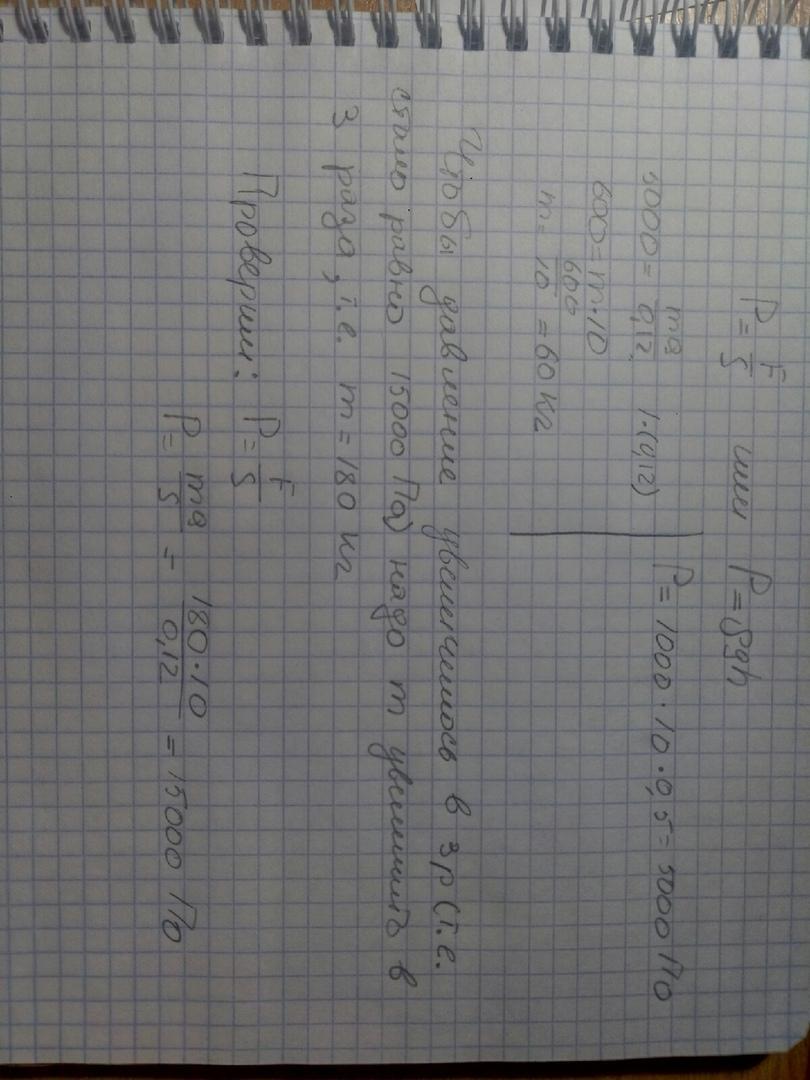 P = F/S или P = ρgh
5000 = mg/0,12 | · (0,12)
P = 1000 · 10 · 0,5 = 5000 Па
600 = m · 10
m = 600/10 = 60 кг
Чтобы давление увеличилось в 3 р (т.е.
стало равно 15000 Па) надо m увеличить в
3 раза, т.е. m = 180 кг
Проверим: P = F/S
P = mg/S = 180 · 10/0,12 = 15000 Па